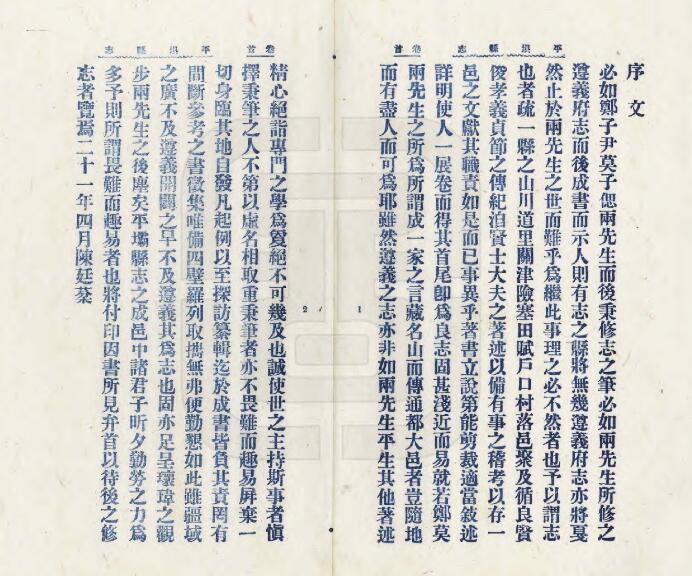 平垻縣志 卷首
序文
必如鄭子尹莫子偲兩先生而後秉修志之筆必如兩先生所修之
遵義府志而後成書而示人則有志之縣將無幾遵義府志亦將戛
然止於兩先生之世而難乎爲繼此事理之必不然者也予以謂志
也者疏一縣之山川道里關津險塞田賦戶口村落邑聚及循良賢
俊孝義貞節之傳紀洎賢士大夫之著述以備有事之稽考以存一
邑之文獻其職責如是而已事異乎著書立說第能剪裁適當敘述
詳明使人一展卷而得其首尾卽爲良志固甚淺近而易就若鄭莫
兩先生之所爲所謂成一家之言藏名山而傳通都大邑者豈隨地
而有盡人而可爲耶雖然遵義之志亦非如兩先生平生其他著述
1
平垻縣志 卷首
精心絕詣專門之學爲夐絕不可幾及也誠使世之主持斯事者慎
擇秉筆之人不第以虛名相取重秉筆者亦不畏難而趣易屛棄一
切身臨其地自發凡起例以至採訪纂輯迄於成書皆負其責罔有
間斷參考之書徵集唯備四壁羅列取攜無弗便勤懇如此雖疆域
之廣不及遵義開闢之早不及遵義其爲志也固亦足呈瓌瑋之觀
步兩先生之後塵矣平壩縣志之成邑中諸君子昕夕勤勞之力爲
多予則所謂畏難而趣易者也將付印因書所見弁首以待後之修
志者覽焉二十一年四月陳廷棻
2